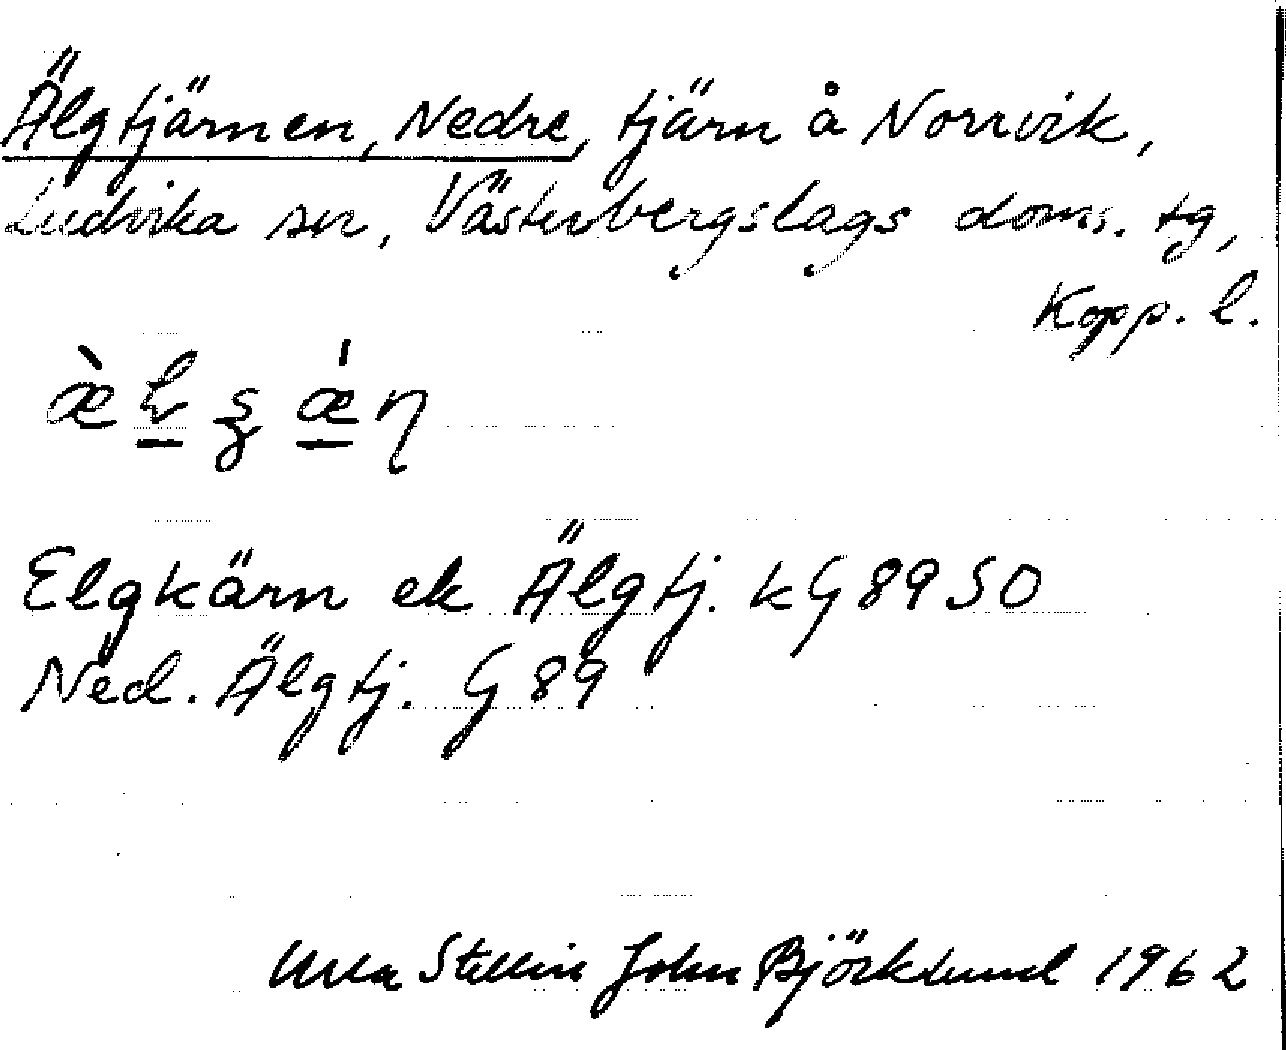 Älgtjärnen, Nedre, tjärn å Norrvik,
Ludvika sn, Västerbergslags doms. tg,
Kopp. l.
Elgkärn ek Älgtj. kG 89 SO
Ned. Älgtj. G 89
Ulla Stellin John Björklund 1962